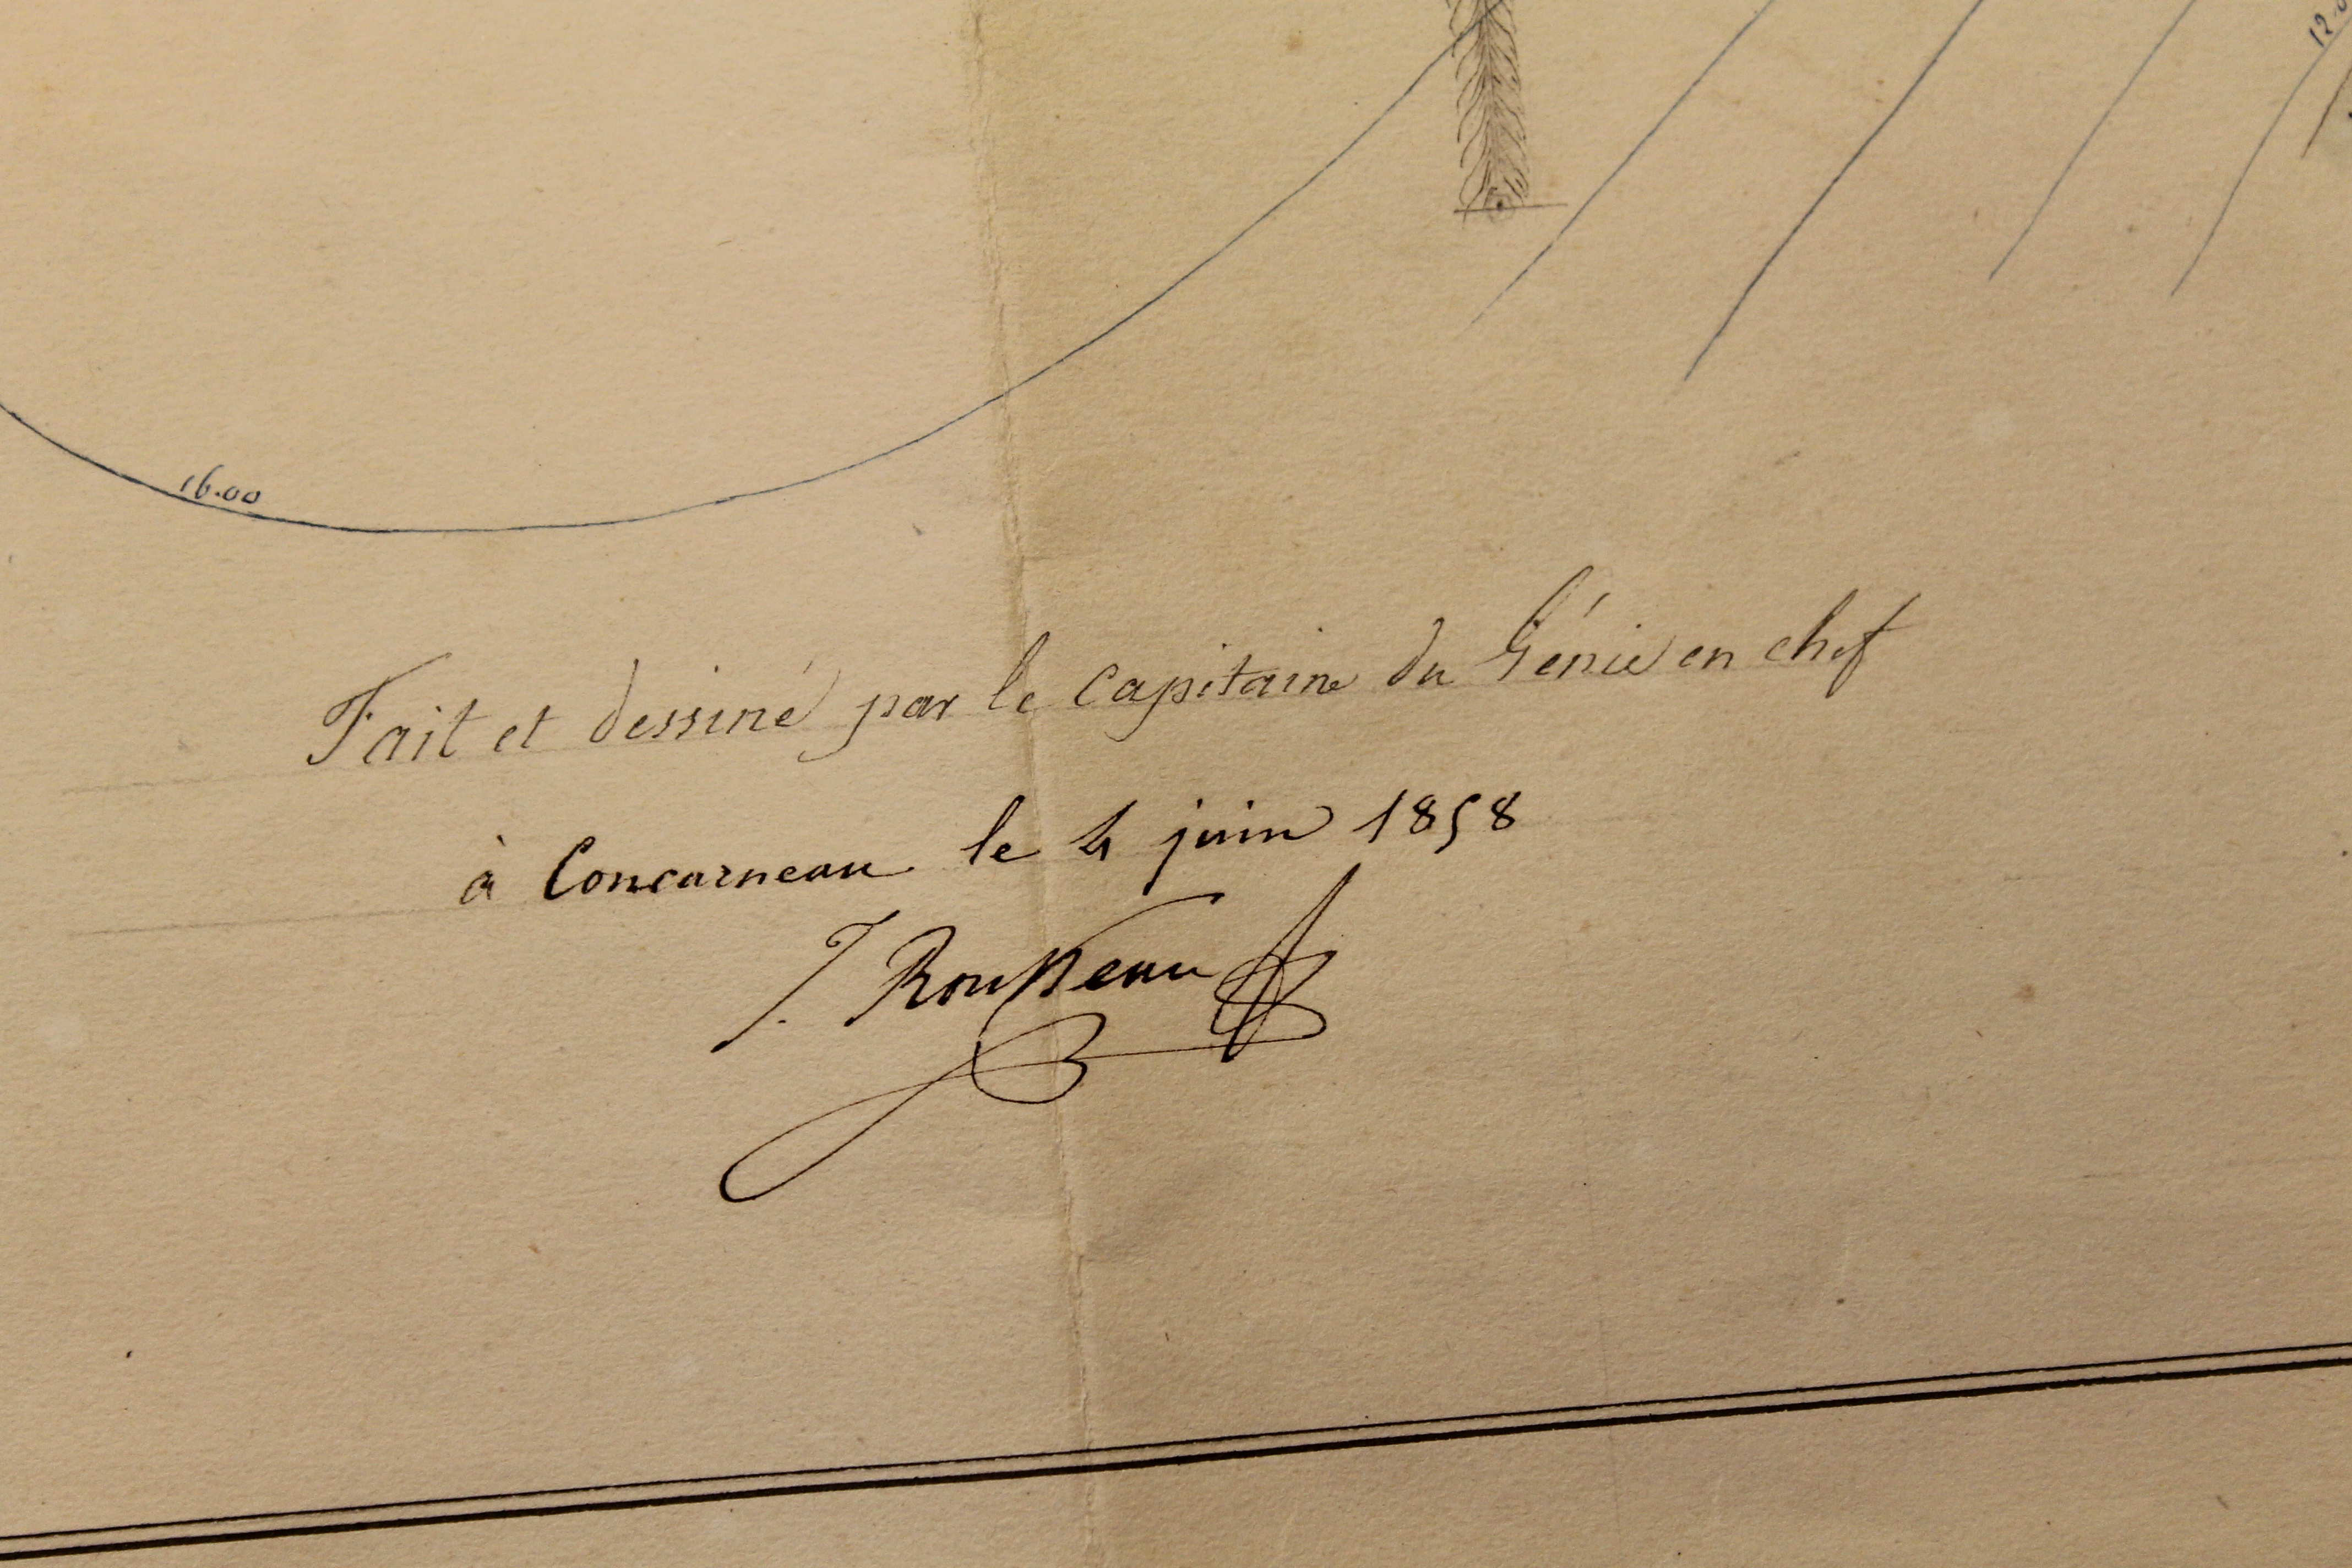 16.00
Fait et dessiné par le capitaine du Génie en chef
à Concarneau le 4 juin 1858
J. Rousseau